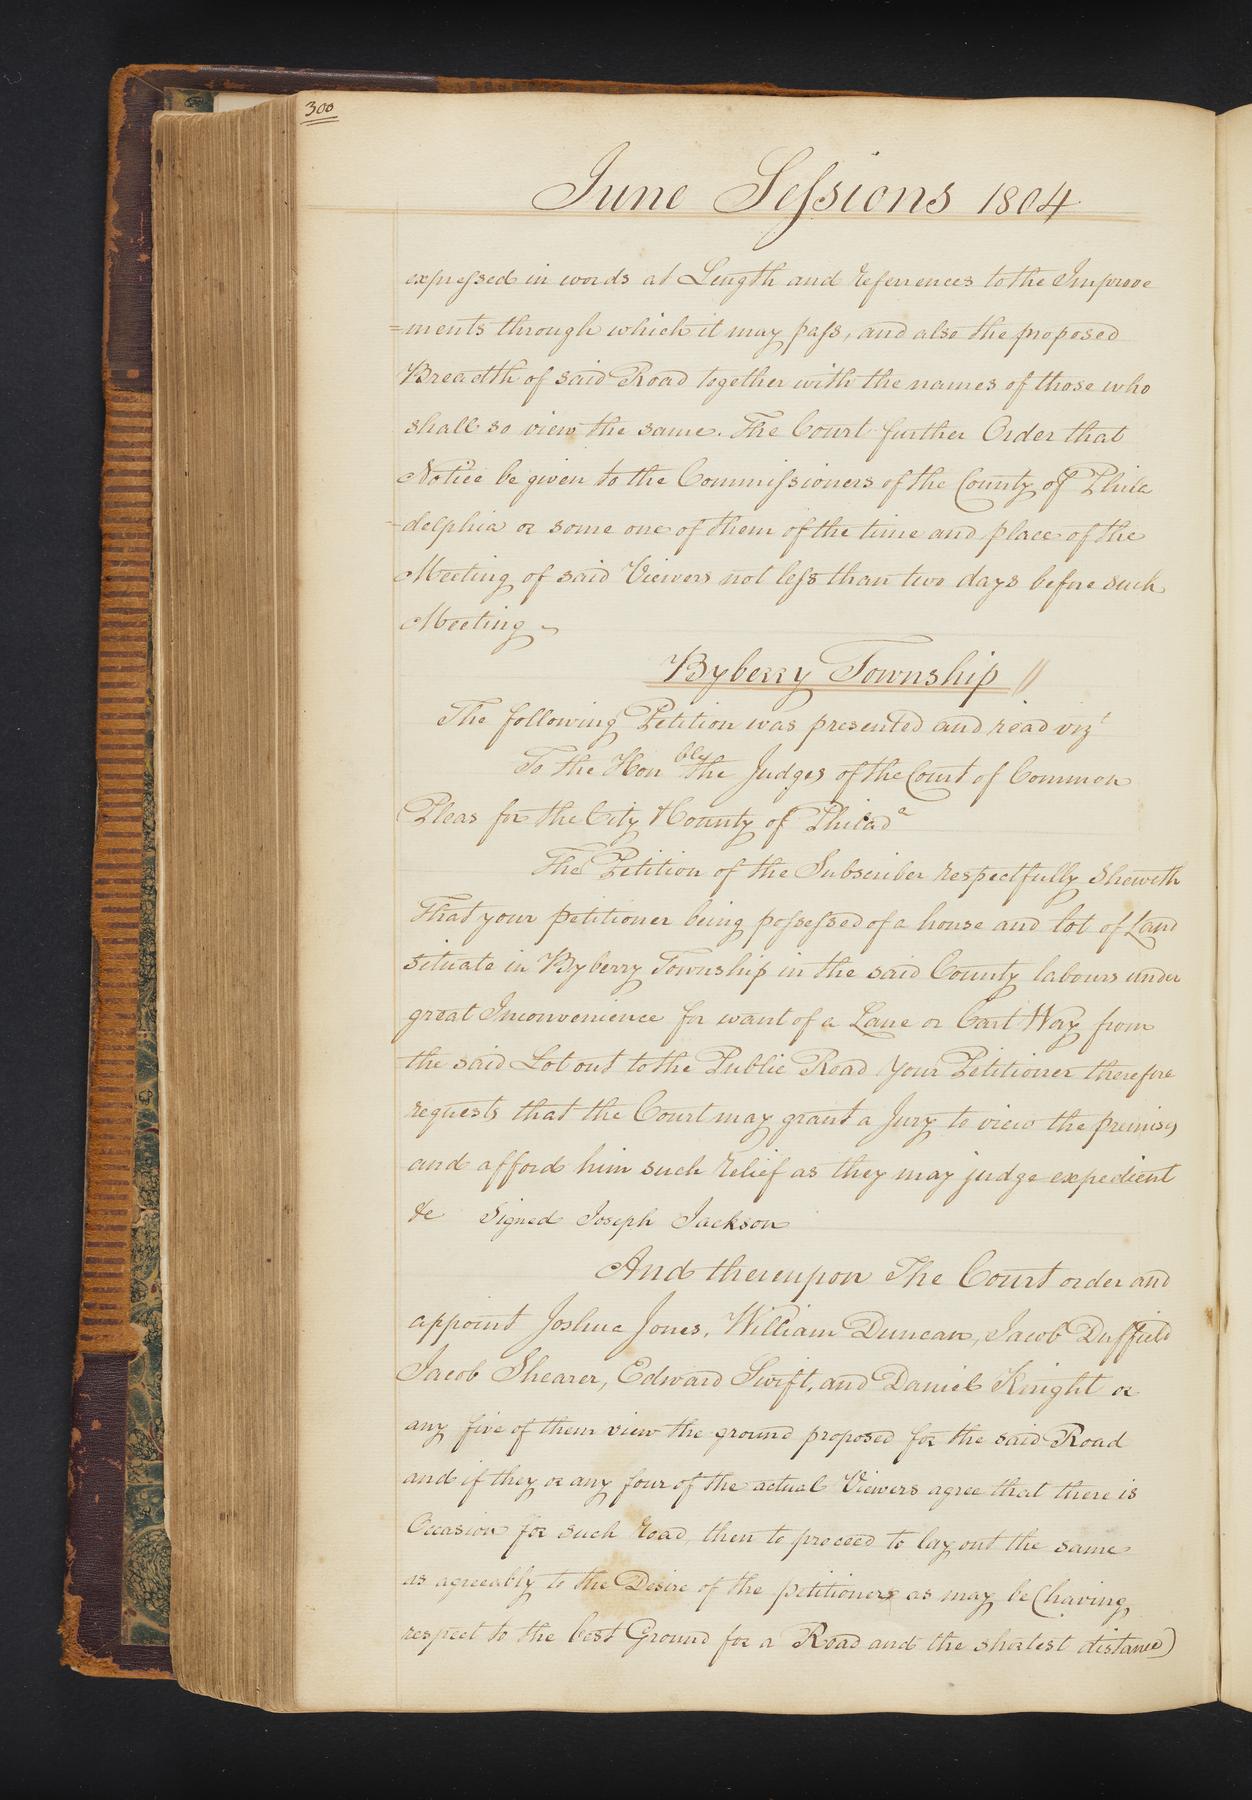 300
June Sessions 1804
expressed in words at Length and referrences to the Improve
=ments through which it may pass, and also the proposed
Breadth of said Road together with the names of those who
shall so view the same. The Court further Order that
Notice be given to the Commissioners of the County of Phila
-delphia or some one of them of the time and place of the
Meeting of said Viewers not less than two days before such
Meeting ~
Byberry Township //
The following Petition was presented and read vizt
To the Honble the Judges of the Court of Common
Pleas for the City & County of Philada
The Petition of the Subscriber respectfully sheweth
That your petitioner being possessed of a house and lot of Land
situate in Byberry Township in the said County labours under
great Inconvenience for want of a Lane or Cart Way from
the said Lot out to the Public Road your Petitioner therefore
requests that the Court may grant a Jury to view the premises
and afford him such relief as they may judge expedient
&c Signed Joseph Jackson
And thereupon The Court order and
appoint Joshua Jones, William Duncan, Jacob Duffield
Jacob Shearer, Edward Swift, and Daniel Knight or
any five of them view the ground proposed for the said Road
and if they or any four of the actual Viewers agree that there is
Occasion for such road, then to proceed to lay out the same
as agreeably to the Desire of the petitioners as may be (having
respect to the best Ground for a Road and the shortest distance)